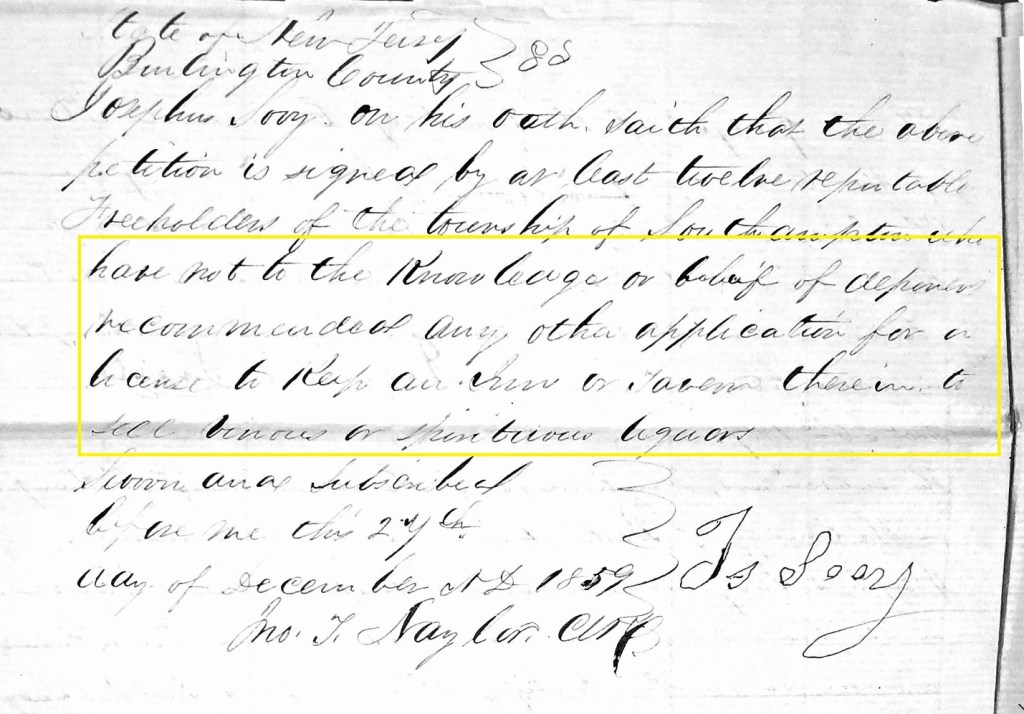 tate of New Jersey
Burlington County } SS
Josephus Sooy. on his oath. saith that the above
petition is signed by at least twelve reputable
Freeholders of the township of Southampton who
have not to the Knowledge or belief of deponent
recommended any other application for a
license to Keep an Inn or Tavern therein. to
sell vinous or spirituous liquors
Sworn and subscribed
before me this 27th
day of December A D 1859
Js Sooy
Jno. T. Naylor.